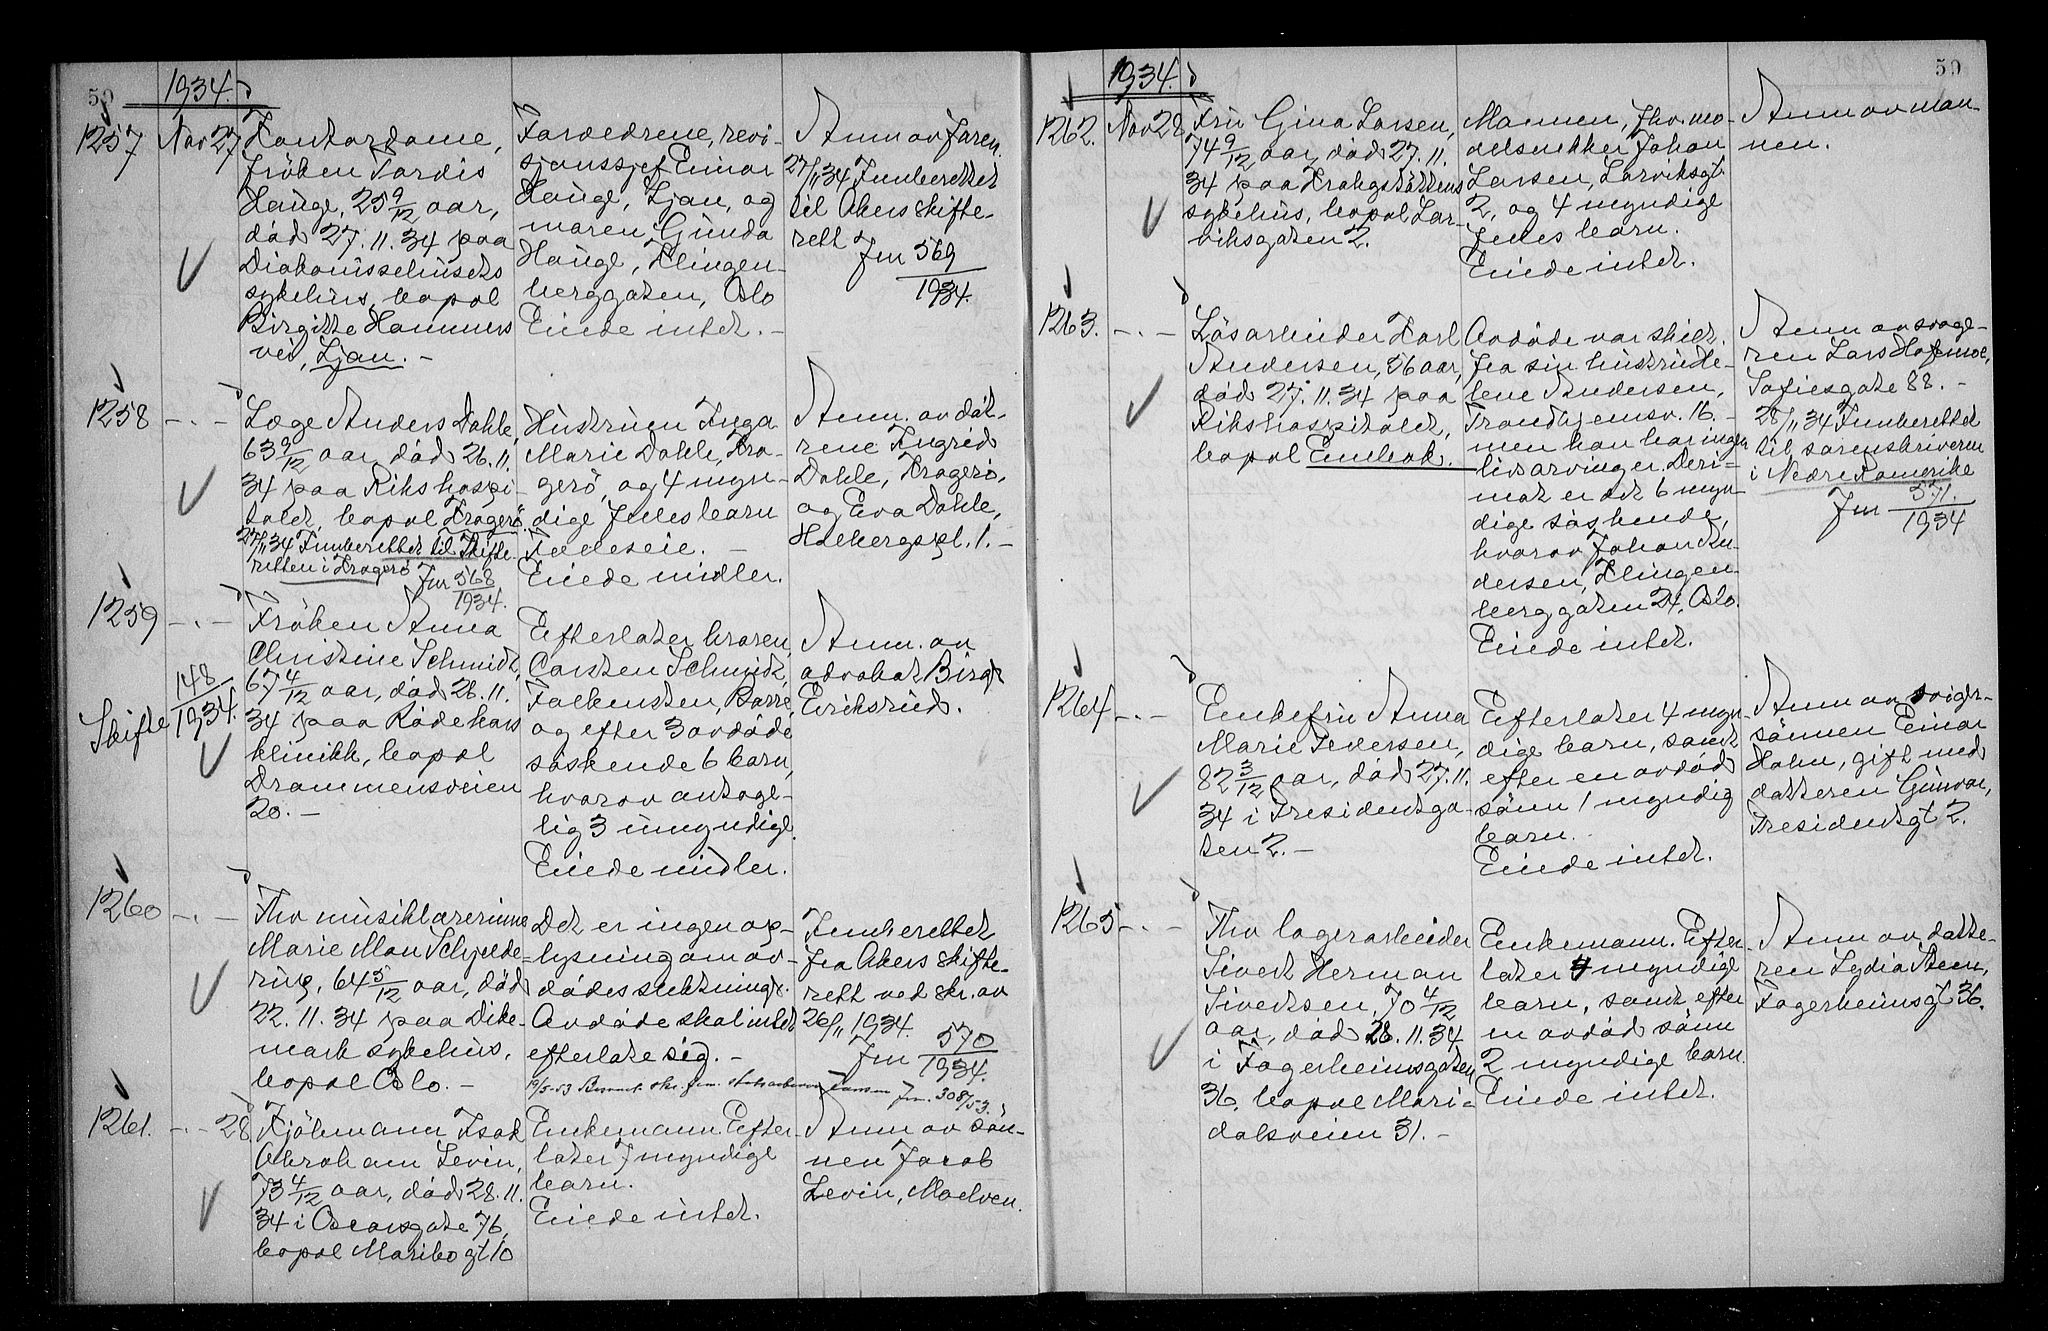 59
1934.
1257
Nov 27
Kontordame,
fröken Tordis
Hauge, 25 9/12 aar,
död 27.11.34 paa
Diakonissehusets
sykehus, bopæl
Birgitte Hammers
vei, Ljan. -
Forældrene, revi-
sjonssjef Einar
Hauge, Ljan, og
moren Gunda
Hauge, Klingen-
berggaten, Oslo
Eiede intet. -
Anm av faren.
27/11 34 Innberettet
til Akers skifte-
rett Jnr 569
1934.
1258 - . -
Læge Anders Dahle,
63 9/12 aar, död 26.11.
34 paa Rikshospi-
talet, bopæl Kragerö.
27/11 34 Innberettet til Skifte-
retten i Kragerö
Jnr 568
1934.
Hustruen Inga
Marie Dahle, Kra-
gerö, og 4 myn-
dige fælles barn
Fælleseie. -
Eiede midler.
Anm. av döt-
rene Ingrid
Dahle, Kragerö,
og Eva Dahle,
Holbergspl. 1. -
1259 - . -
Skifte 148
1934.
Fröken Anna
Christine Schmidt,
67 4/12 aar, död 26.11.
34 paa Rödekors
klinikk, bopæl
Drammensveien
20. -
Efterlater broren
Carsten Schmidt,
Falkensten, Borre,
og efter 3 avdöde
söskende 6 barn,
hvorav antage-
lig 3 umyndige.
Eiede midler.
Anm. av
advokat Birg.
Eriksrud.
1260 - . -
Fhv musiklærerinne
Marie Mau Schjelde-
rup, 64 5/12 aar, död
22.11.34 paa Dike-
mark sykehus,
bopæl Oslo. -
Det er ingen op-
lysning om av-
dödes slektninger.
Avdöde skal intet
efterlate sig. -
Innberettet
fra Akers skifte-
rett ved skr. av
26/11 1934.
Jnr 570
1934.
19/5-53 Jnr. 308/53.
1261. - . - 28
Kjöbmann Isak
Abraham Levin,
73 4/12 aar, död 28.11.
34 i Oscarsgate 76,
bopæl Maribogt 10
Enkemann. Efter-
later 7 myndige
barn.
Eiede intet.
Anm av sön-
nen Jacob
Levin, Moelven.
59
1934.
1262.
Nov 28
Fru Gina Larsen,
74 9/12 aar, död 27.11.
34 paa Krohgstöttens
sykehus, bopæl Lar-
viksgaten 2.
Mannen, fhv. mo-
delsnekker Johan
Larsen, Larviksgt.
2, og 4 myndige
fælles barn.
Eiede intet.
Anm av man-
nen.
1263. - . -
Lösarbeider Karl
Andersen, 56 aar,
död 27.11.34 paa
Rikshospitalet,
bopæl Enebak.
Avdöde var skilt
fra sin hustru He-
lene Andersen,
Trondhjemsv. 16. -
men han har ingen
livsarvinger. Deri-
mot er det 6 myn-
dige söskende,
hvorav Johan An-
dersen, Klingen-
berggaten 24, Oslo.
Eiede intet.
Anm av svoge-
ren Lars Hofsmoe,
Sofiesgate 88. -
28/11 34 Innberettet
til sorenskriveren
i Nedre Romerike
Jnr 571.
1934
1264 - . -
Enkefru Anna
Marie Pedersen,
82 3/12 aar, död 27.11.
34 i Presidentga-
ten 2. -
Efterlater 4 myn-
dige barn, samt
efter en avdöd
sönn 1 myndig
barn.
Eiede intet.
Anm av sviger-
sönnen Einar
Holm, gift med
datteren Gunvor,
Presidentgt 2.
1265 - . -
Fhv lagerarbeider
Sivert Herman
Sivertsen, 70 4/12
aar, död 28.11.34
i Fagerheimsgaten
36, bopæl Mari-
dalsveien 31. -
Enkemann. Efter-
later 4 myndige
barn, samt efter
en avdöd sönn
2 myndige barn.
Eiede intet.
Anm av datte-
ren Lydia Steen,
Fagerheimsgt 36.